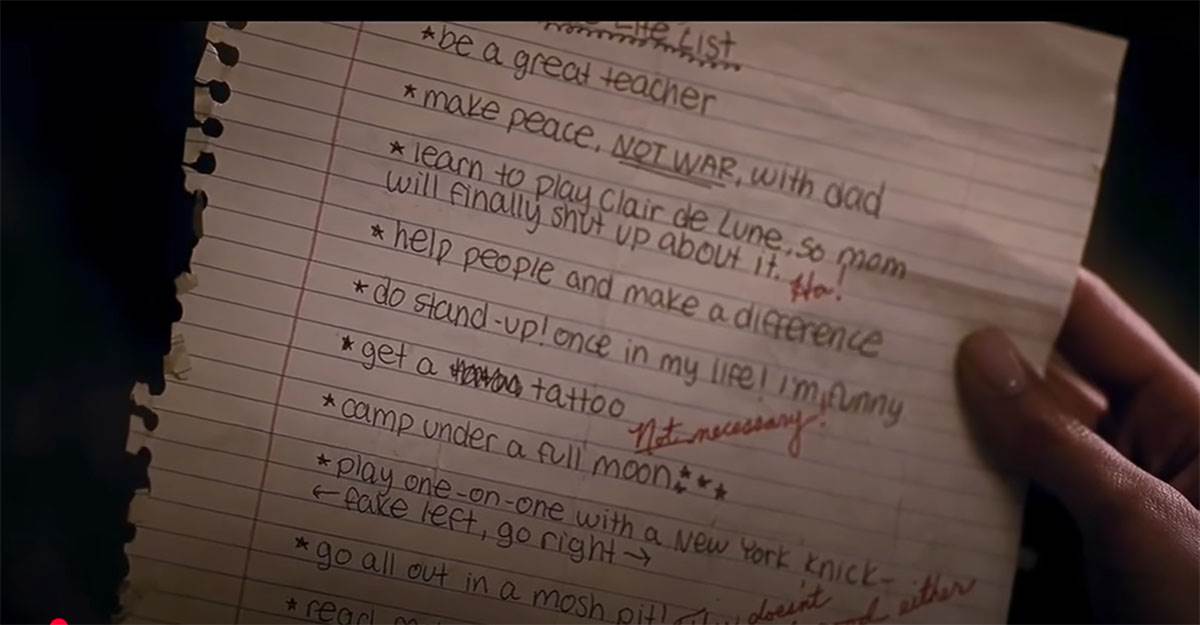 Life List
*be a great teacher
*make peace, NOT WAR, with dad
*learn to play Clair de Lune, so mom
will finally shut up about it. Ha!
*help people and make a difference
*do stand-up! once in my life! i'm funny
*get a tattoo
Not necessary!
*camp under a full moon
*play one-on-one with a New York Knick-
←fake left, go right→
*go all out in a mosh pit!
doesn't
either
*read